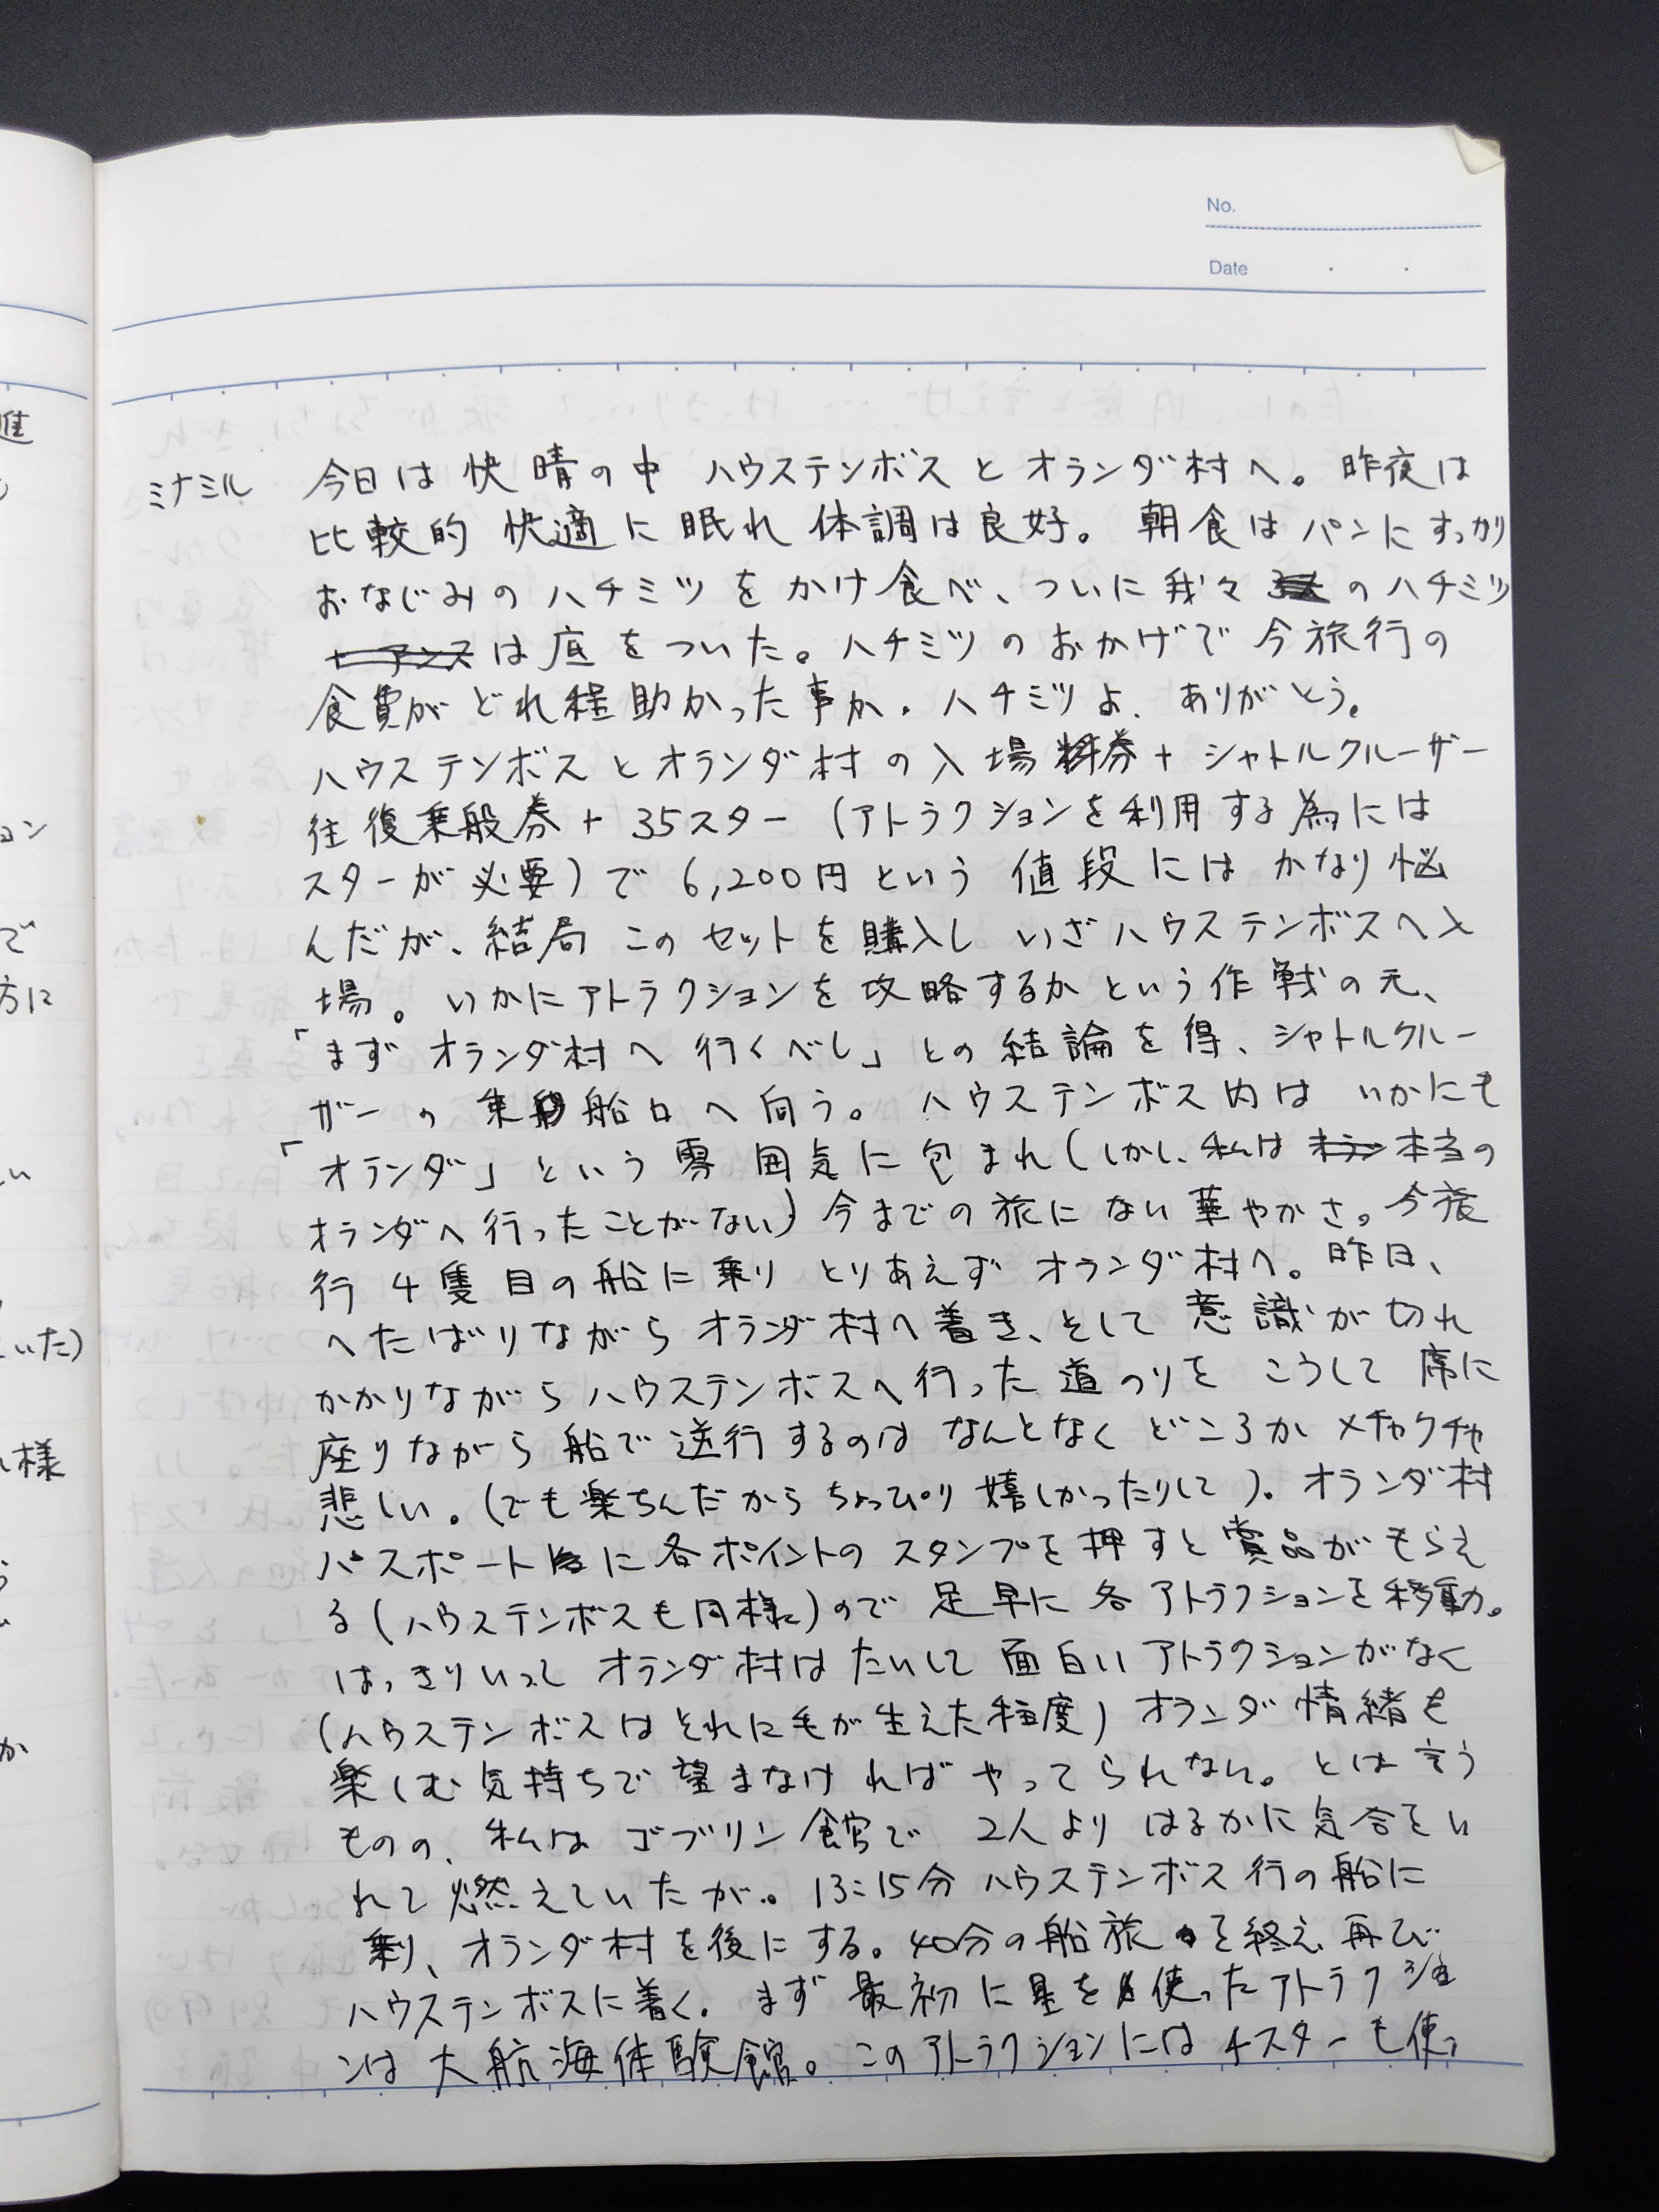 No.
Date
ミナミル
今日は快晴の中 ハウステンボスとオランダ村へ。昨夜は
比較的 快適に眠れ 体調は良好。朝食はパンにすっかり
おなじみのハチミツをかけ食べ、ついに我々のハチミツ
は底をついた。ハチミツのおかげで今旅行の
食費がどれ程助かった事か。ハチミツよ、ありがとう。
ハウステンボスとオランダ村の入場券+シャトルクルーザー
往復乗船券+35スター(アトラクションを利用する為には
スターが必要)で6,200円という値段にはかなり悩
んだが、結局このセットを購入し いざハウステンボスへ入
場。いかにアトラクションを攻略するかという作戦の元、
「まずオランダ村へ行くべし」との結論を得、シャトルクルー
ザーの乗船口へ向う。ハウステンボス内は いかにも
「オランダ」という雰囲気に包まれ(しかし、私は本当の
オランダへ行ったことがない)今までの旅にない華やかさ。今旅
行4隻目の船に乗り とりあえずオランダ村へ。昨日、
へたばりながらオランダ村へ着き、そして意識が切れ
かかりながらハウステンボスへ行った道のりを こうして席に
座りながら船で逆行するのはなんとなくどころかメチャクチャ
悲しい。(でも楽ちんだからちょっぴり嬉しかったりして)。オランダ村
パスポートに各ポイントのスタンプを押すと賞品がもらえ
る(ハウステンボスも同様に)ので足早に各アトラクションを移動。
はっきりいって オランダ村はたいして面白いアトラクションがなく
(ハウステンボスはそれに毛が生えた程度)オランダ情緒を
楽しむ気持ちで望まなければやってられない。とは言う
ものの、私はゴブリン館で 2人よりはるかに気合をい
れて燃えていたが。13:15分ハウステンボス行の船に
乗り、オランダ村を後にする。40分の船旅を終え、再び
ハウステンボスに着く。まず最初に星を使ったアトラクショ
ンは大航海体験館。このアトラクションには4スターも使っ
進
ョン
で
方に
い
いた)
様
か